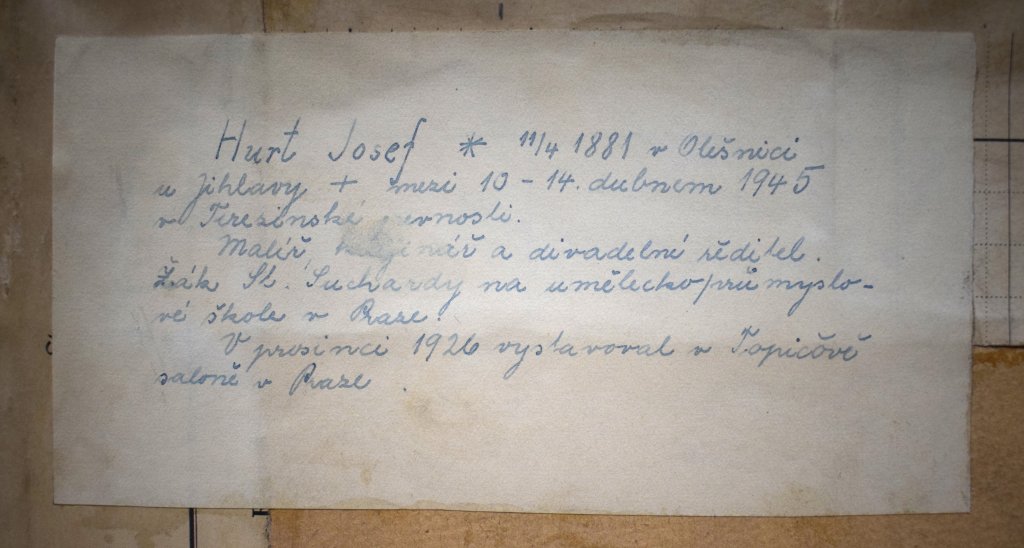 Hurt Josef * 11/4 1881 v Olešnici
u Jihlavy + mezi 10 - 14. dubnem 1945
v Terezínské pevnosti.
Malíř, a divadelní ředitel.
Žák St. Suchardy na uměleckoprůmyslo-
vé škole v Praze.
V prosinci 1926 vystavoval v Topičově
saloně v Praze.